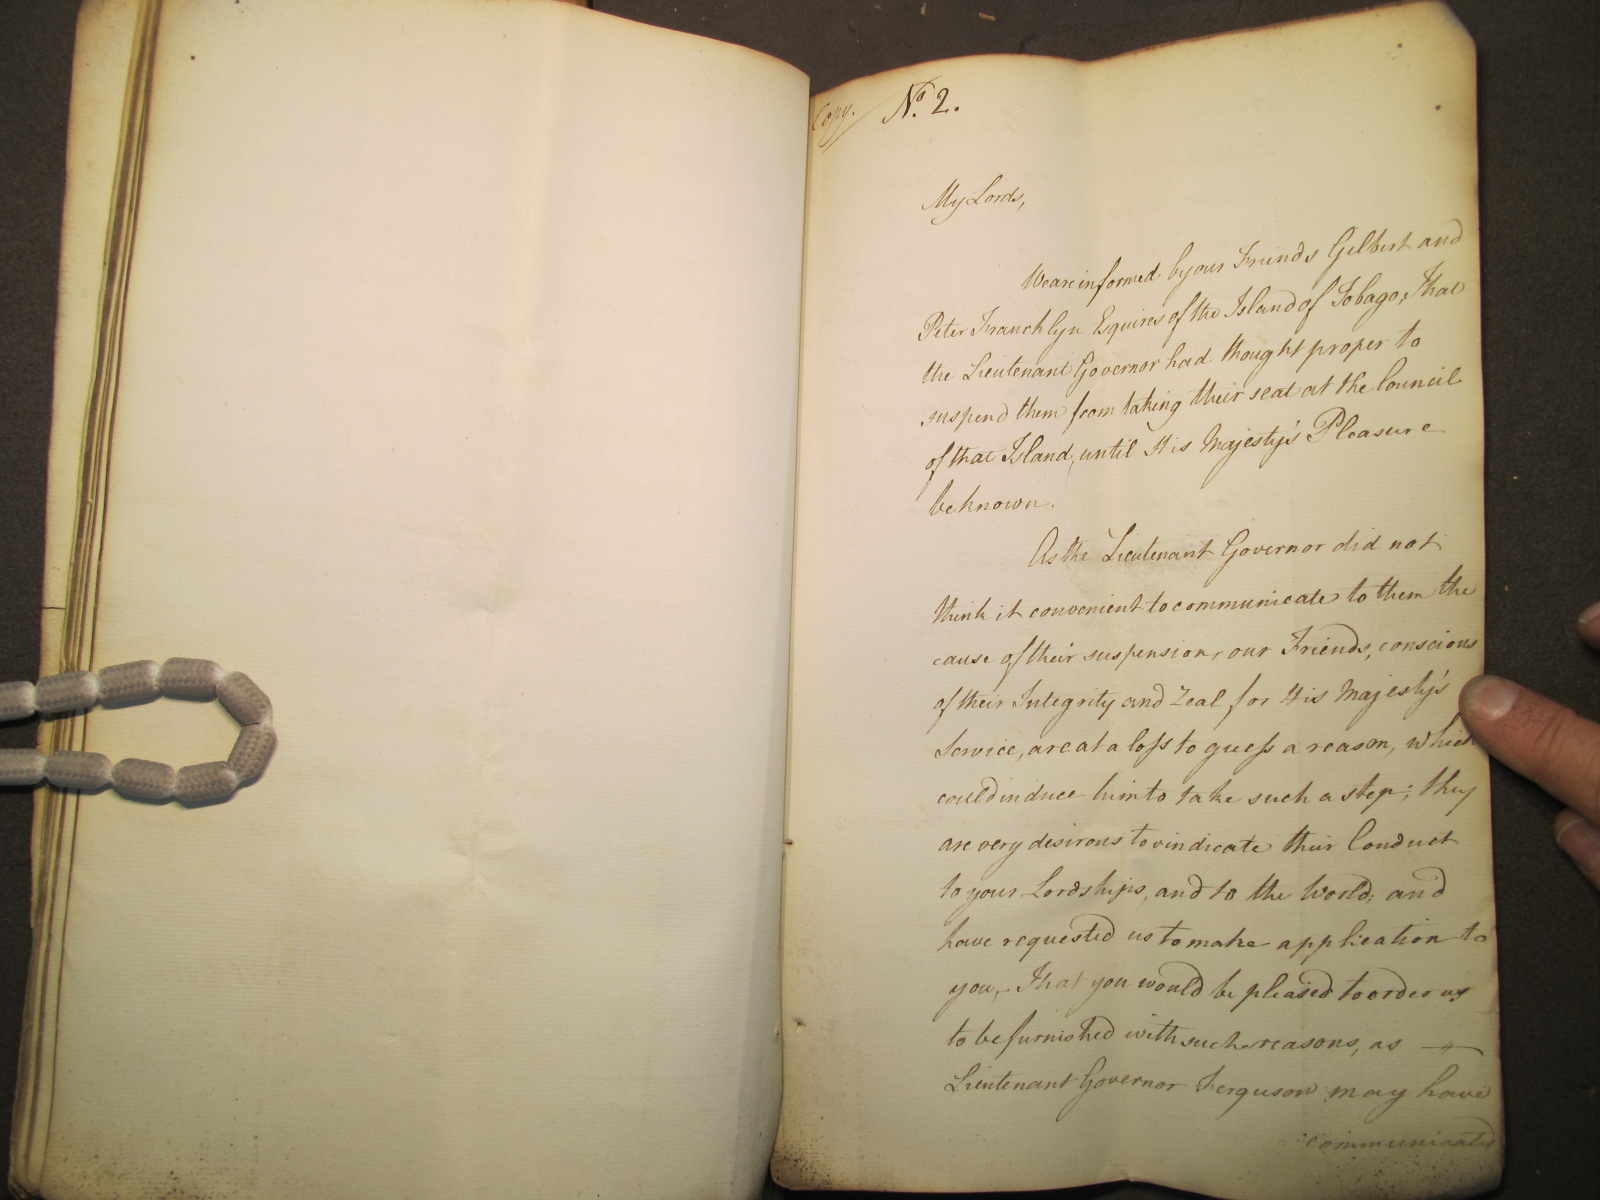 Copy. No. 2.
My Lords,
We are informed by our Friends Gilbert and
Peter Francklyn Esquires of the Island of Tobago, That
the Lieutenant Governor had thought proper to
suspend them from taking their seat at the Council
of that Island, until His Majesty's Pleasure
be known.
As the Lieutenant Governor did not
think it convenient to communicate to them the
cause of their suspension, our Friends, conscious
of their Integrity and Zeal for His Majesty's
Service, are at a loss to guess a reason, which
could induce him to take such a step; they
are very desirous to vindicate their Conduct
to your Lordships, and to the World; and
have requested us to make application to
you, That you would be pleased to order us
to be furnished with such reasons, as
Lieutenant Governor Ferguson may have
communicated